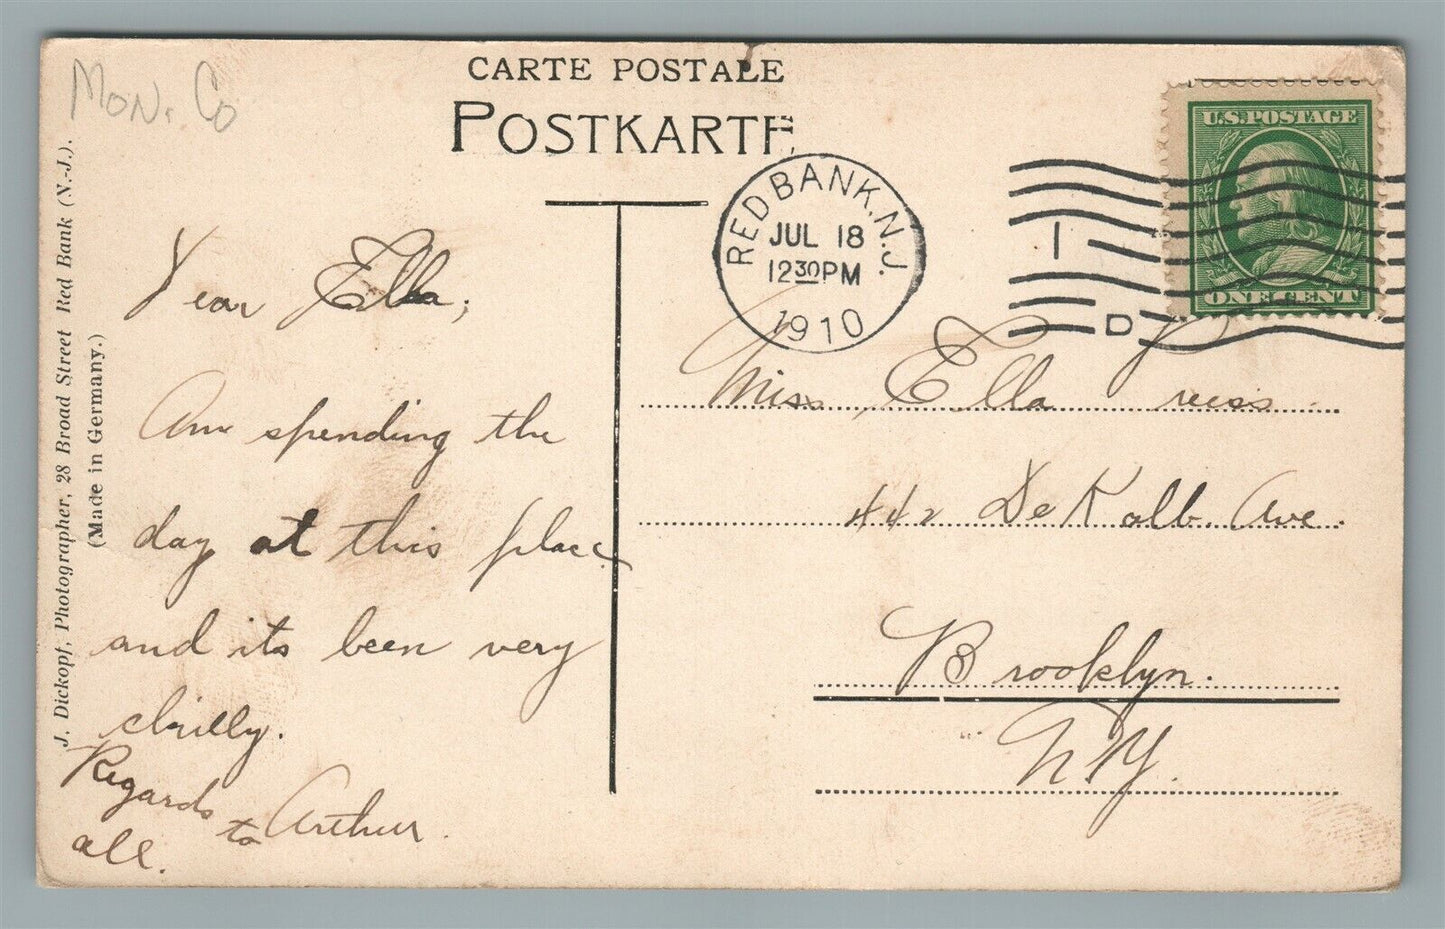 Mon. Co
CARTE POSTALE
POSTKARTE
J. Dickopf, Photographer, 28 Broad Street Red Bank (N.-J.).
(Made in Germany.)
RED BANK. N.J.
JUL 18
12 30 PM
1910
1
D
U.S. POSTAGE
ONE CENT
Dear Ella;
Am spending the
day at this place
and its been very
chilly.
Regards
to
all.
Arthur.
Miss Ella
442 DeKalb. Ave.
Brooklyn.
N.Y.